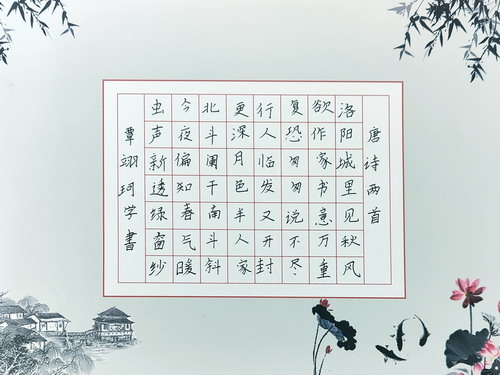 唐诗两首
洛阳城里见秋风
欲作家书意万重
复恐匆匆说不尽
行人临发又开封
更深月色半人家
北斗阑干南斗斜
今夜偏知春气暖
虫声新透绿窗纱
覃翊珂学書